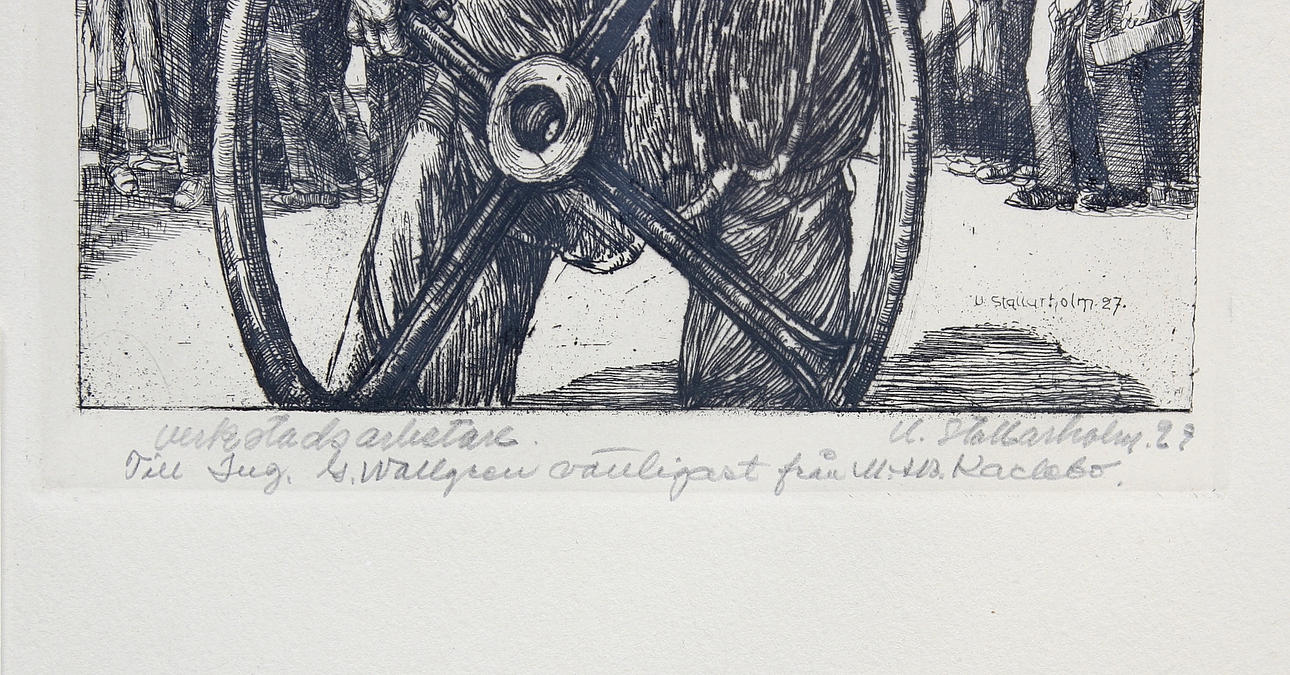 U. Stallarholm. 27.
verkstadsarbetare.
U. Stallarholm. 27
Till Ing. G. Wallgren vänligast från